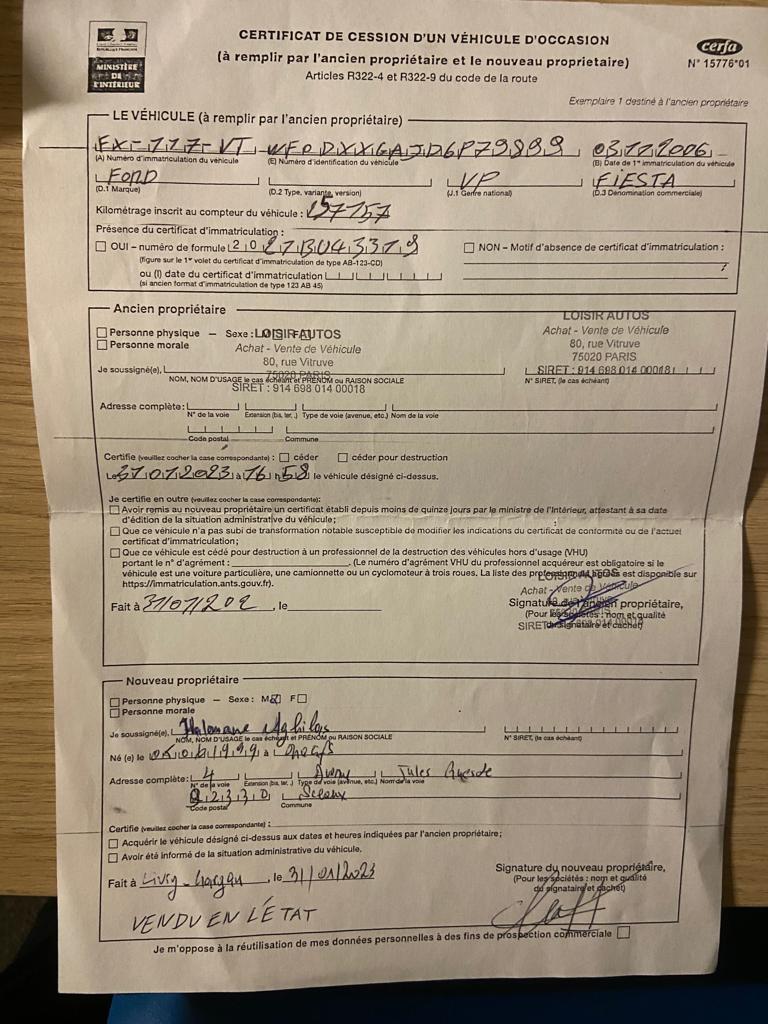 RÉPUBLIQUE FRANÇAISE
MINISTÈRE
DE
L'INTÉRIEUR
CERTIFICAT DE CESSION D'UN VÉHICULE D'OCCASION
(à remplir par l'ancien propriétaire et le nouveau proprietaire)
Articles R322-4 et R322-9 du code de la route
cerfa
N° 15776*01
Exemplaire 1 destiné à l'ancien propriétaire
LE VÉHICULE (à remplir par l'ancien propriétaire)
FX-777-VT WF0DXXGAJD6P79899 03122006
(A) Numéro d'immatriculation du véhicule (E) Numéro d'identification du véhicule (B) Date de 1re immatriculation du véhicule
FORD VP FiESTA
(D.1 Marque) (D.2 Type, variante, version) (J.1 Genre national) (D.3 Dénomination commerciale)
Kilométrage inscrit au compteur du véhicule : 157157
Présence du certificat d'immatriculation :
OUI – numéro de formule NON – Motif d'absence de certificat d'immatriculation :
(figure sur le 1er volet du certificat d'immatriculation de type AB-123-CD)
ou (I) date du certificat d'immatriculation
(si ancien format d'immatriculation de type 123 AB 45)
Ancien propriétaire
Personne physique – Sexe : M F
Personne morale
LOISIR AUTOS
Achat - Vente de Véhicule
80, rue Vitruve
75020 PARIS
SIRET : 914 698 014 00018
LOISIR AUTOS
Achat - Vente de Véhicule
80, rue Vitruve
75020 PARIS
SIRET : 914 698 014 00018
Je soussigné(e),
NOM, NOM D'USAGE le cas échéant et PRÉNOM ou RAISON SOCIALE N° SIRET, (le cas échéant)
Adresse complète :
N° de la voie Extension (bis, ter, .) Type de voie (avenue, etc.) Nom de la voie
Code postal Commune
Certifie (veuillez cocher la case correspondante) : céder céder pour destruction
Le 31012023 à 16 h 58 le véhicule désigné ci-dessus.
Je certifie en outre (veuillez cocher la case correspondante):
Avoir remis au nouveau propriétaire un certificat établi depuis moins de quinze jours par le ministre de l'Intérieur, attestant à sa date
d'édition de la situation administrative du véhicule;
Que ce véhicule n'a pas subi de transformation notable susceptible de modifier les indications du certificat de conformité ou de l'actuel
certificat d'immatriculation;
Que ce véhicule est cédé pour destruction à un professionnel de la destruction des véhicules hors d'usage (VHU)
portant le n° d'agrément : (Le numéro d'agrément VHU du professionnel acquéreur est obligatoire si le
véhicule est une voiture particulière, une camionnette ou un cyclomoteur à trois roues. La liste des professionnels agréés est disponible sur
https://immatriculation.ants.gouv.fr).
Fait à 31/01/202 , le
LOISIR AUTOS
Achat - Vente de Véhicule
Signature de l'ancien propriétaire,
(Pour les sociétés : nom et qualité
du signataire et cachet)
Nouveau propriétaire
Personne physique – Sexe : M F
Personne morale
Je soussigné(e),
NOM, NOM D'USAGE le cas échéant et PRÉNOM ou RAISON SOCIALE N° SIRET, (le cas échéant)
Né (e) le à
Adresse complète : 4 Jules Guesde
N° de la voie Extension (bis, ter, .) Type de voie (avenue, etc.) Nom de la voie
92330 Sceaux
Code postal Commune
Certifie (veuillez cocher la case correspondante) :
Acquérir le véhicule désigné ci-dessus aux dates et heures indiquées par l'ancien propriétaire;
Avoir été informé de la situation administrative du véhicule.
Fait à Livry-Gargan , le 31/01/2023
Signature du nouveau propriétaire,
(Pour les sociétés : nom et qualité
du signataire et cachet)
VENDU EN L'ÉTAT
Je m'oppose à la réutilisation de mes données personnelles à des fins de prospection commerciale